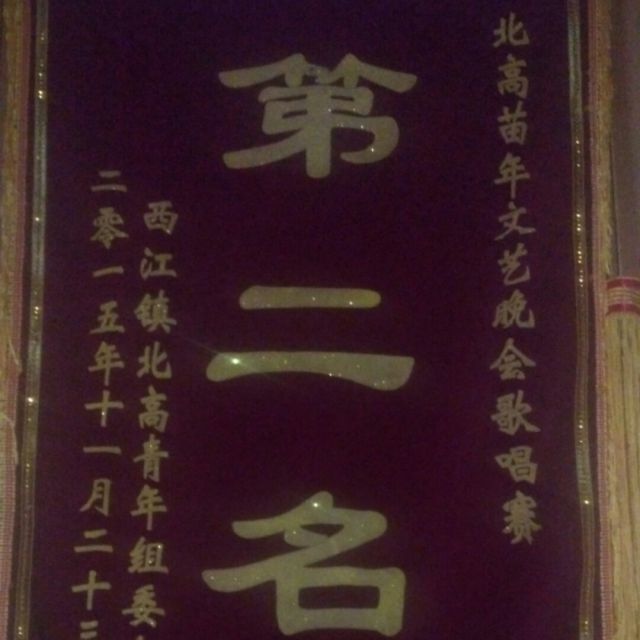 北高苗年文艺晚会歌唱赛
第二名
西江镇北高青年组委
二零一五年十一月二十三